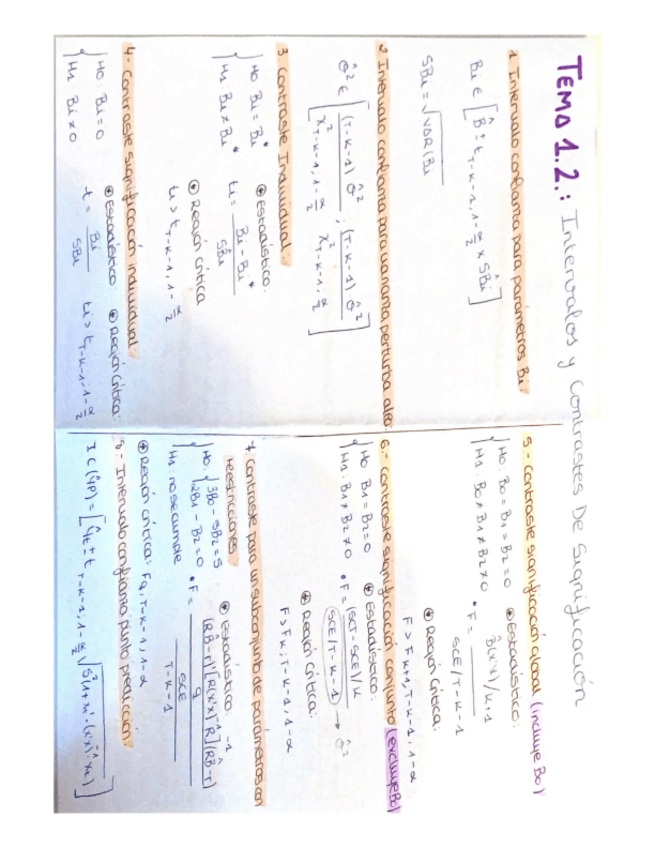 TEMA 1.2.: Intervalos y Contrastes De Significación
1 Intervalo confianza para parámetros Bi:
Bi ∈ [B̂ ± t T-K-1, 1-α/2 × ŜBi]
SBi = √VAR(Bi
2 Intervalo confianza para varianza perturba alea
σ̂² ∈ [(T-K-1) σ̂² / χ² T-K-1, 1-α/2 ; (T-K-1) σ̂² / χ² T-K-1, α/2]
3 Contraste Individual:
{ H0 Bi = Bi*
H1 Bi ≠ Bi*
⊛ Estadístico:
ti = Bi - Bi* / ŜBi
⊛ Región crítica
ti > t T-K-1, 1-α/2
4- Contraste significación individual:
{ H0: Bi = 0
H1 Bi ≠ 0
⊛ Estadístico:
t = Bi / SBi
⊛ Región crítica:
ti > t T-K-1, 1-α/2
5- Contraste significación global (incluye B0)
{ H0: B0 = B1 = B2 = 0
H1 B0 ≠ B1 ≠ B2 ≠ 0
⊛ Estadístico:
• F = B̂(x'x)/K+1 / SCE/T-K-1
⊛ Región crítica:
F > F K+1, T-K-1, 1-α
6- Contraste significación conjunto (excluye B0)
{ H0 B1 = B2 = 0
H1: B1 ≠ B2 ≠ 0
⊛ Estadístico:
• F = (SCT-SCE)/K / (SCE/T-K-1) → σ̂²
⊛ Región crítica:
F > F K; T-K-1, 1-α
7. Contraste para un subconjunto de parámetros con
reestricciones
{ H0: { 3B0 - 5B2 = 5
2B1 - B2 = 0
H1: no se cumple
⊛ Estadístico:
• F = (RB̂-r)' [R(x'x)⁻¹R'] (RB̂-r) / q / SCE / T-K-1
⊛ Región crítica: Fq, T-K-1, 1-α
8- Intervalo confianza punto predicción:
IC(ŶP) = [Ŷt ± t T-K-1, 1-α/2 √S²(1+xt'·(x'x)⁻¹·xt)]